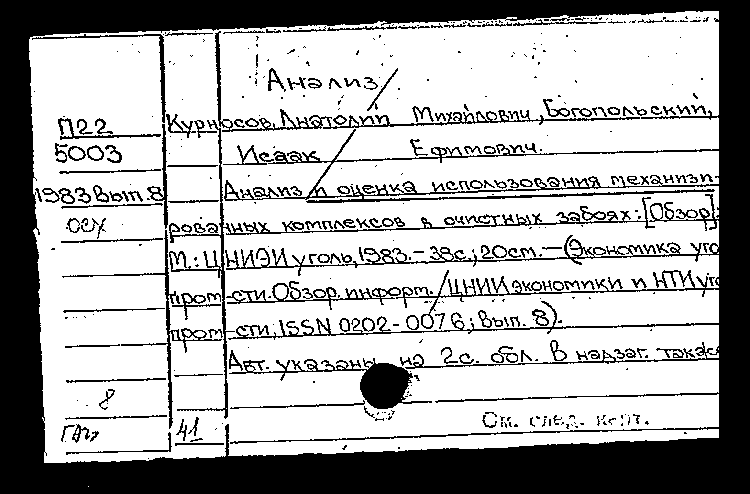 Анализ
П22 Курносов, Анатолий Михайлович, Богопольский,
5003 Исаак Ефимович.
1983 вып. 8 Анализ и оценка использования механизи-
осх рованных комплексов в очистных забоях: [Обзор].
М.: ЦНИЭИуголь, 1983. - 38с.; 20см. — (Экономика уго
пром-сти. Обзор. информ. / ЦНИИ экономики и НТИ уго
пром-сти; ISSN 0202-0076; вып. 8).
Авт. указаны на 2с. обл. В надзаг. также
8
41 См. след. карт.